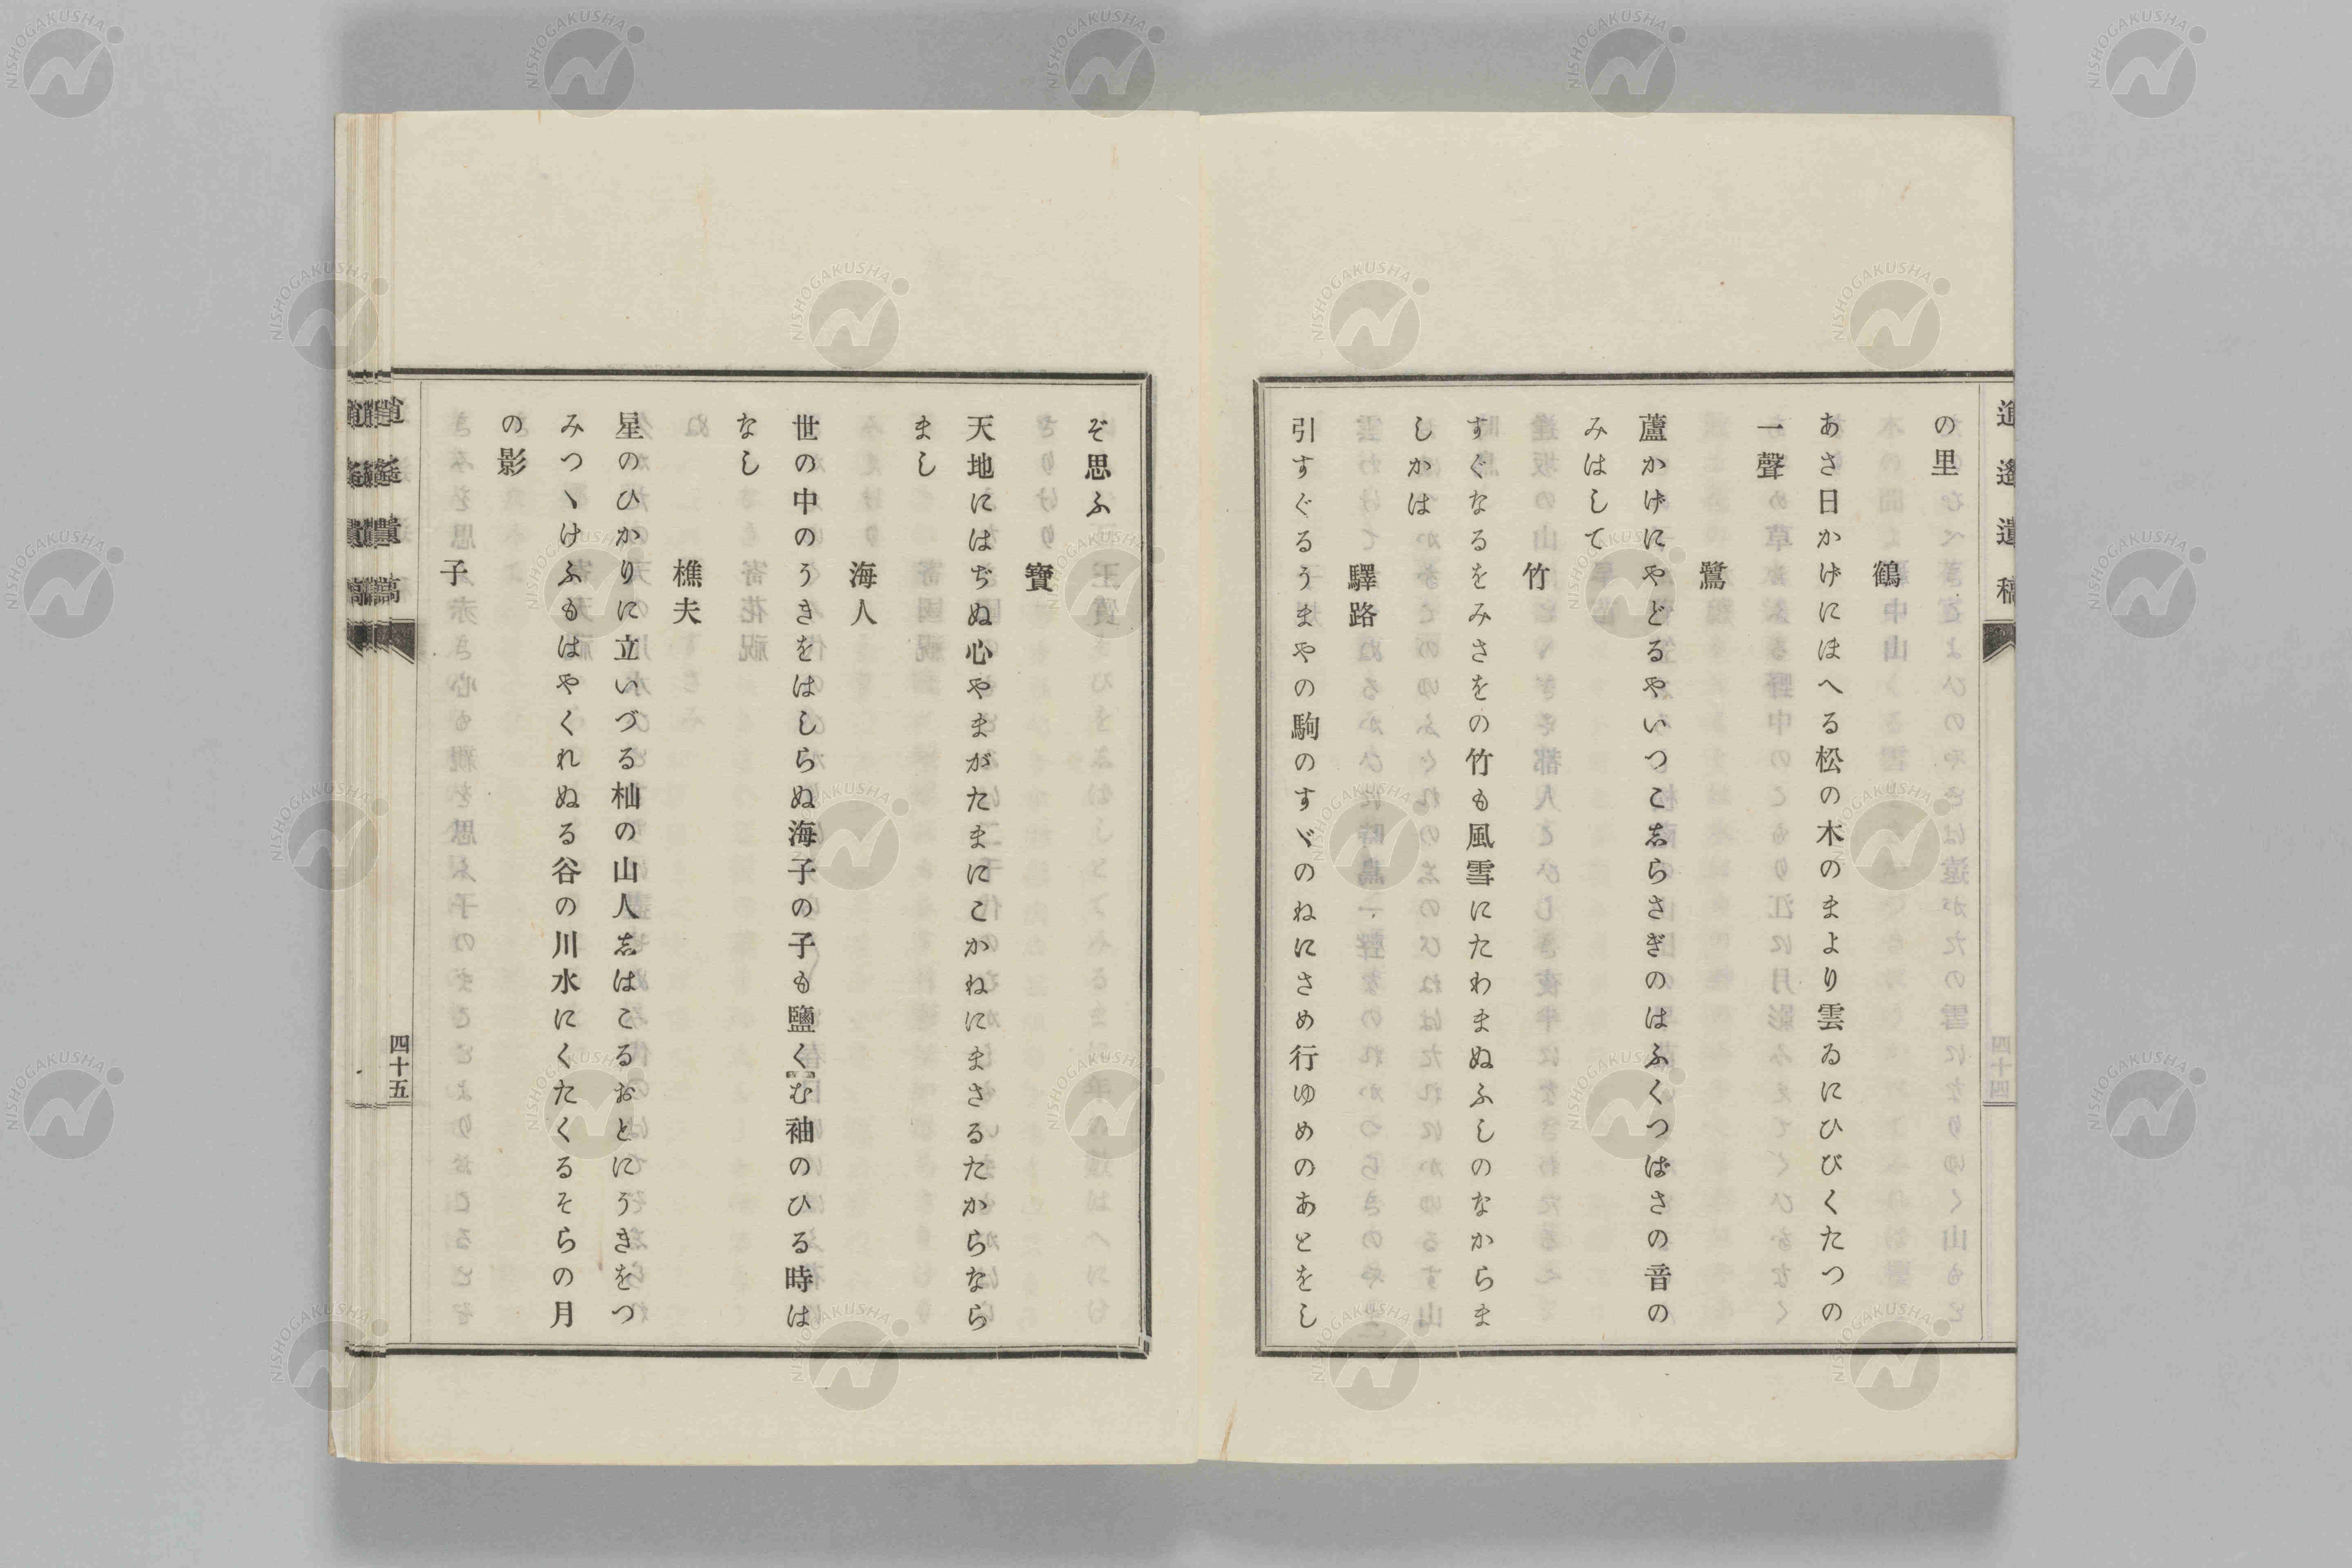 の里
鶴
あさ日かげにほへる松の木のまより雲ゐにひびくたつの
一聲
鷺
蘆かげにやどるやいつこ志らさぎのはふくつばさの音の
みはして
竹
すぐなるをみさをの竹も風雪にたわまぬふしのなからま
しかは
驛路
引すぐるうまやの駒のすゞのねにさめ行ゆめのあとをし
ぞ思ふ
寶
天地にはぢぬ心やまがたまにこかねにまさるたからなら
まし
海人
世の中のうきをはしらぬ海子の子も鹽くむ袖のひる時は
なし
樵夫
星のひかりに立いづる杣の山人志はこるおとにうきをつ
みつゝけふもはやくれぬる谷の川水にくたくるそらの月
の影
子
逍遙遺稿
四十五
NISHOGAKUSHA